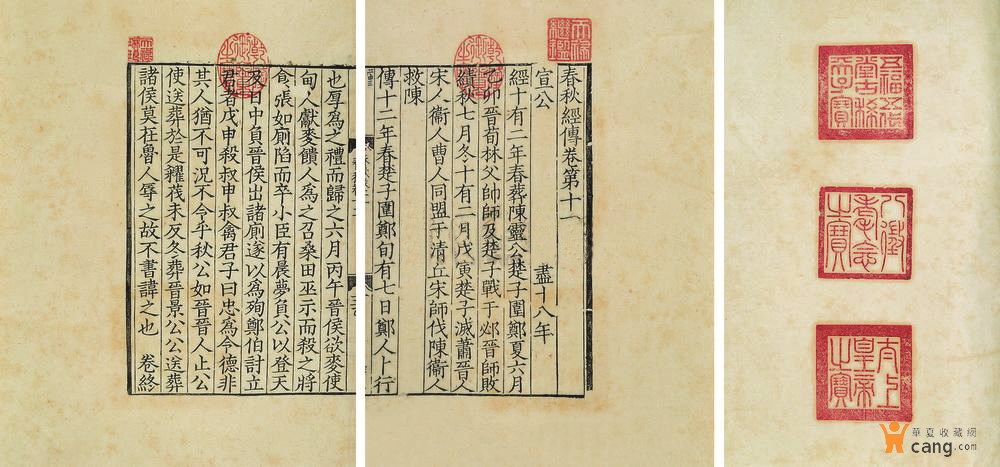 春秋經傳卷第十一
宣公 盡十八年
經十有二年春葬陳靈公楚子圍鄭夏六月
乙卯晉荀林父帥師及楚子戰于邲晉師敗
績秋七月冬十有二月戊寅楚子滅蕭晉人
宋人衞人曹人同盟于清丘宋師伐陳衞人
救陳
傳十二年春楚子圍鄭旬有七日鄭人卜行
也厚爲之禮而歸之六月丙午晉侯欲麥使
甸人獻麥饋人爲之召桑田巫示而殺之將
食張如廁陷而卒小臣有晨夢負公以登天
及日中負晉侯出諸廁遂以爲殉鄭伯討立
君者戊申殺叔申叔禽君子曰忠爲令德非
其人猶不可況不令乎秋公如晉晉人止公
使送葬於是糴茷未反冬葬晉景公公送葬
諸侯莫在魯人辱之故不書諱之也 卷終
天祿繼鑑
乾隆御覽之寶
乾隆御覽之寶
天祿琳琅
五福五代堂古稀天子寶
八徵耄念之寶
太上皇帝之寶
華夏收藏網
cang.com